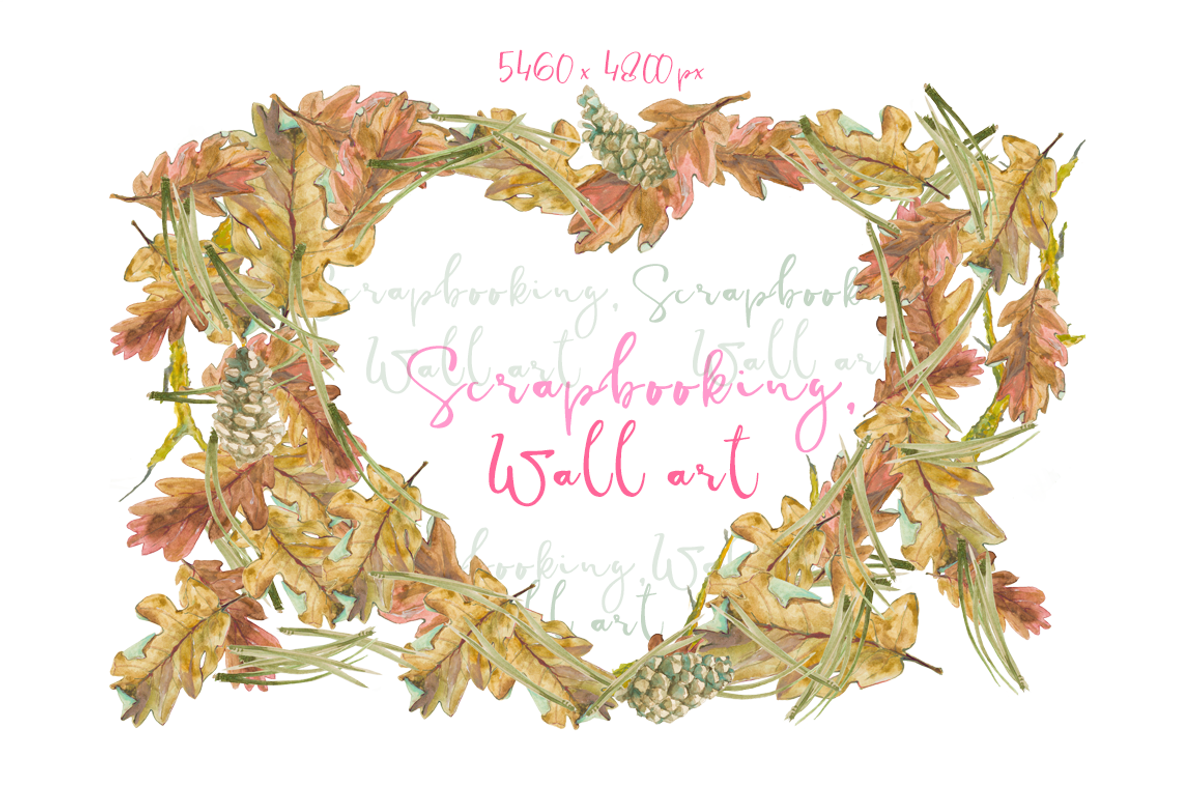 5460 x 4800 px
Scrapbooking, Scrapbook
Wall art Wall art
Scrapbooking,
Wall art
booking, Wa
ll art